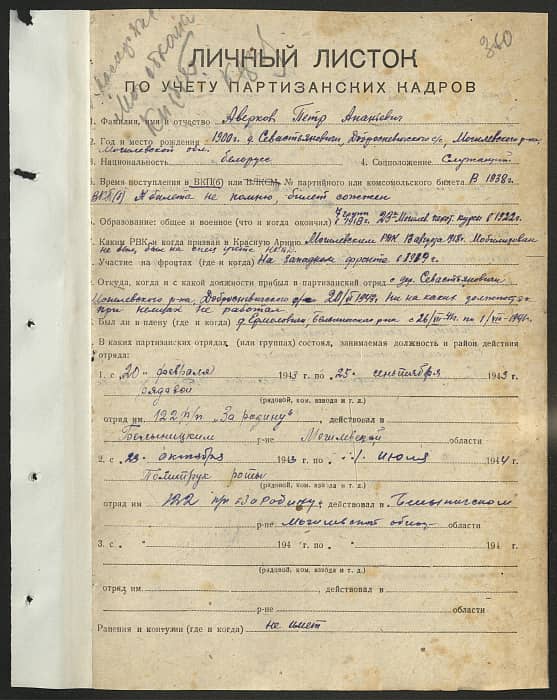 360
ЛИЧНЫЙ ЛИСТОК
ПО УЧЕТУ ПАРТИЗАНСКИХ КАДРОВ
1. Фамилия, имя и отчество Аверков Петр Ананиевич
2. Год и место рождения 1900г. д. Севастьяновичи, Добросневичского с/с, Могилевского р-на,
Могилевской обл.
3. Национальность белорус 4. Соцположение Служащий
5. Время поступления в ВКП(б) или ВЛКСМ, № партийного или комсомольского билета В 1938г.
ВКП(б) № билета не помню, билет сожжен
6. Образование: общее и военное (что и когда окончил) в 1918г. Могилев курсы в 1922г.
7. Каким РВК и когда призван в Красную Армию Могилевским РВК 1918г. Мобилизован
не был, был на спец учете НКВД
Участие на фронтах (где и когда) На западном фронте в 1919г.
Откуда, когда и с какой должности прибыл в партизанский отряд с дер. Севастьяновичи
Могилевского р-на, с/с Ни на каких должностях
при немцах не работал
Был ли в плену (где и когда) д. Ермоловичи, р-на с по
В каких партизанских отрядах (или группах) состоял, занимаемая должность и район действия
отряда:
1. с „20“ февраля 1943 г. по „25“ сентября 1943 г.
рядовой
(рядовой, ком. взвода и т. д.)
отряд им. 122 п/п „За родину“, действовал в
Белыничским р-не Могилевской области
2. с октября 1943 г. по июля 1944 г.
Политрук роты
(рядовой, ком. взвода и т. д.)
отряд им 122 пп „За Родину“, действовал в Белыничском
р-не Могилевской област области
3. с „ “ 194 г. по „ “ 194 г.
(рядовой, ком. взвода и т. д.)
отряд им. , действовал в
р-не области
Ранения и контузии (где и когда) не имет